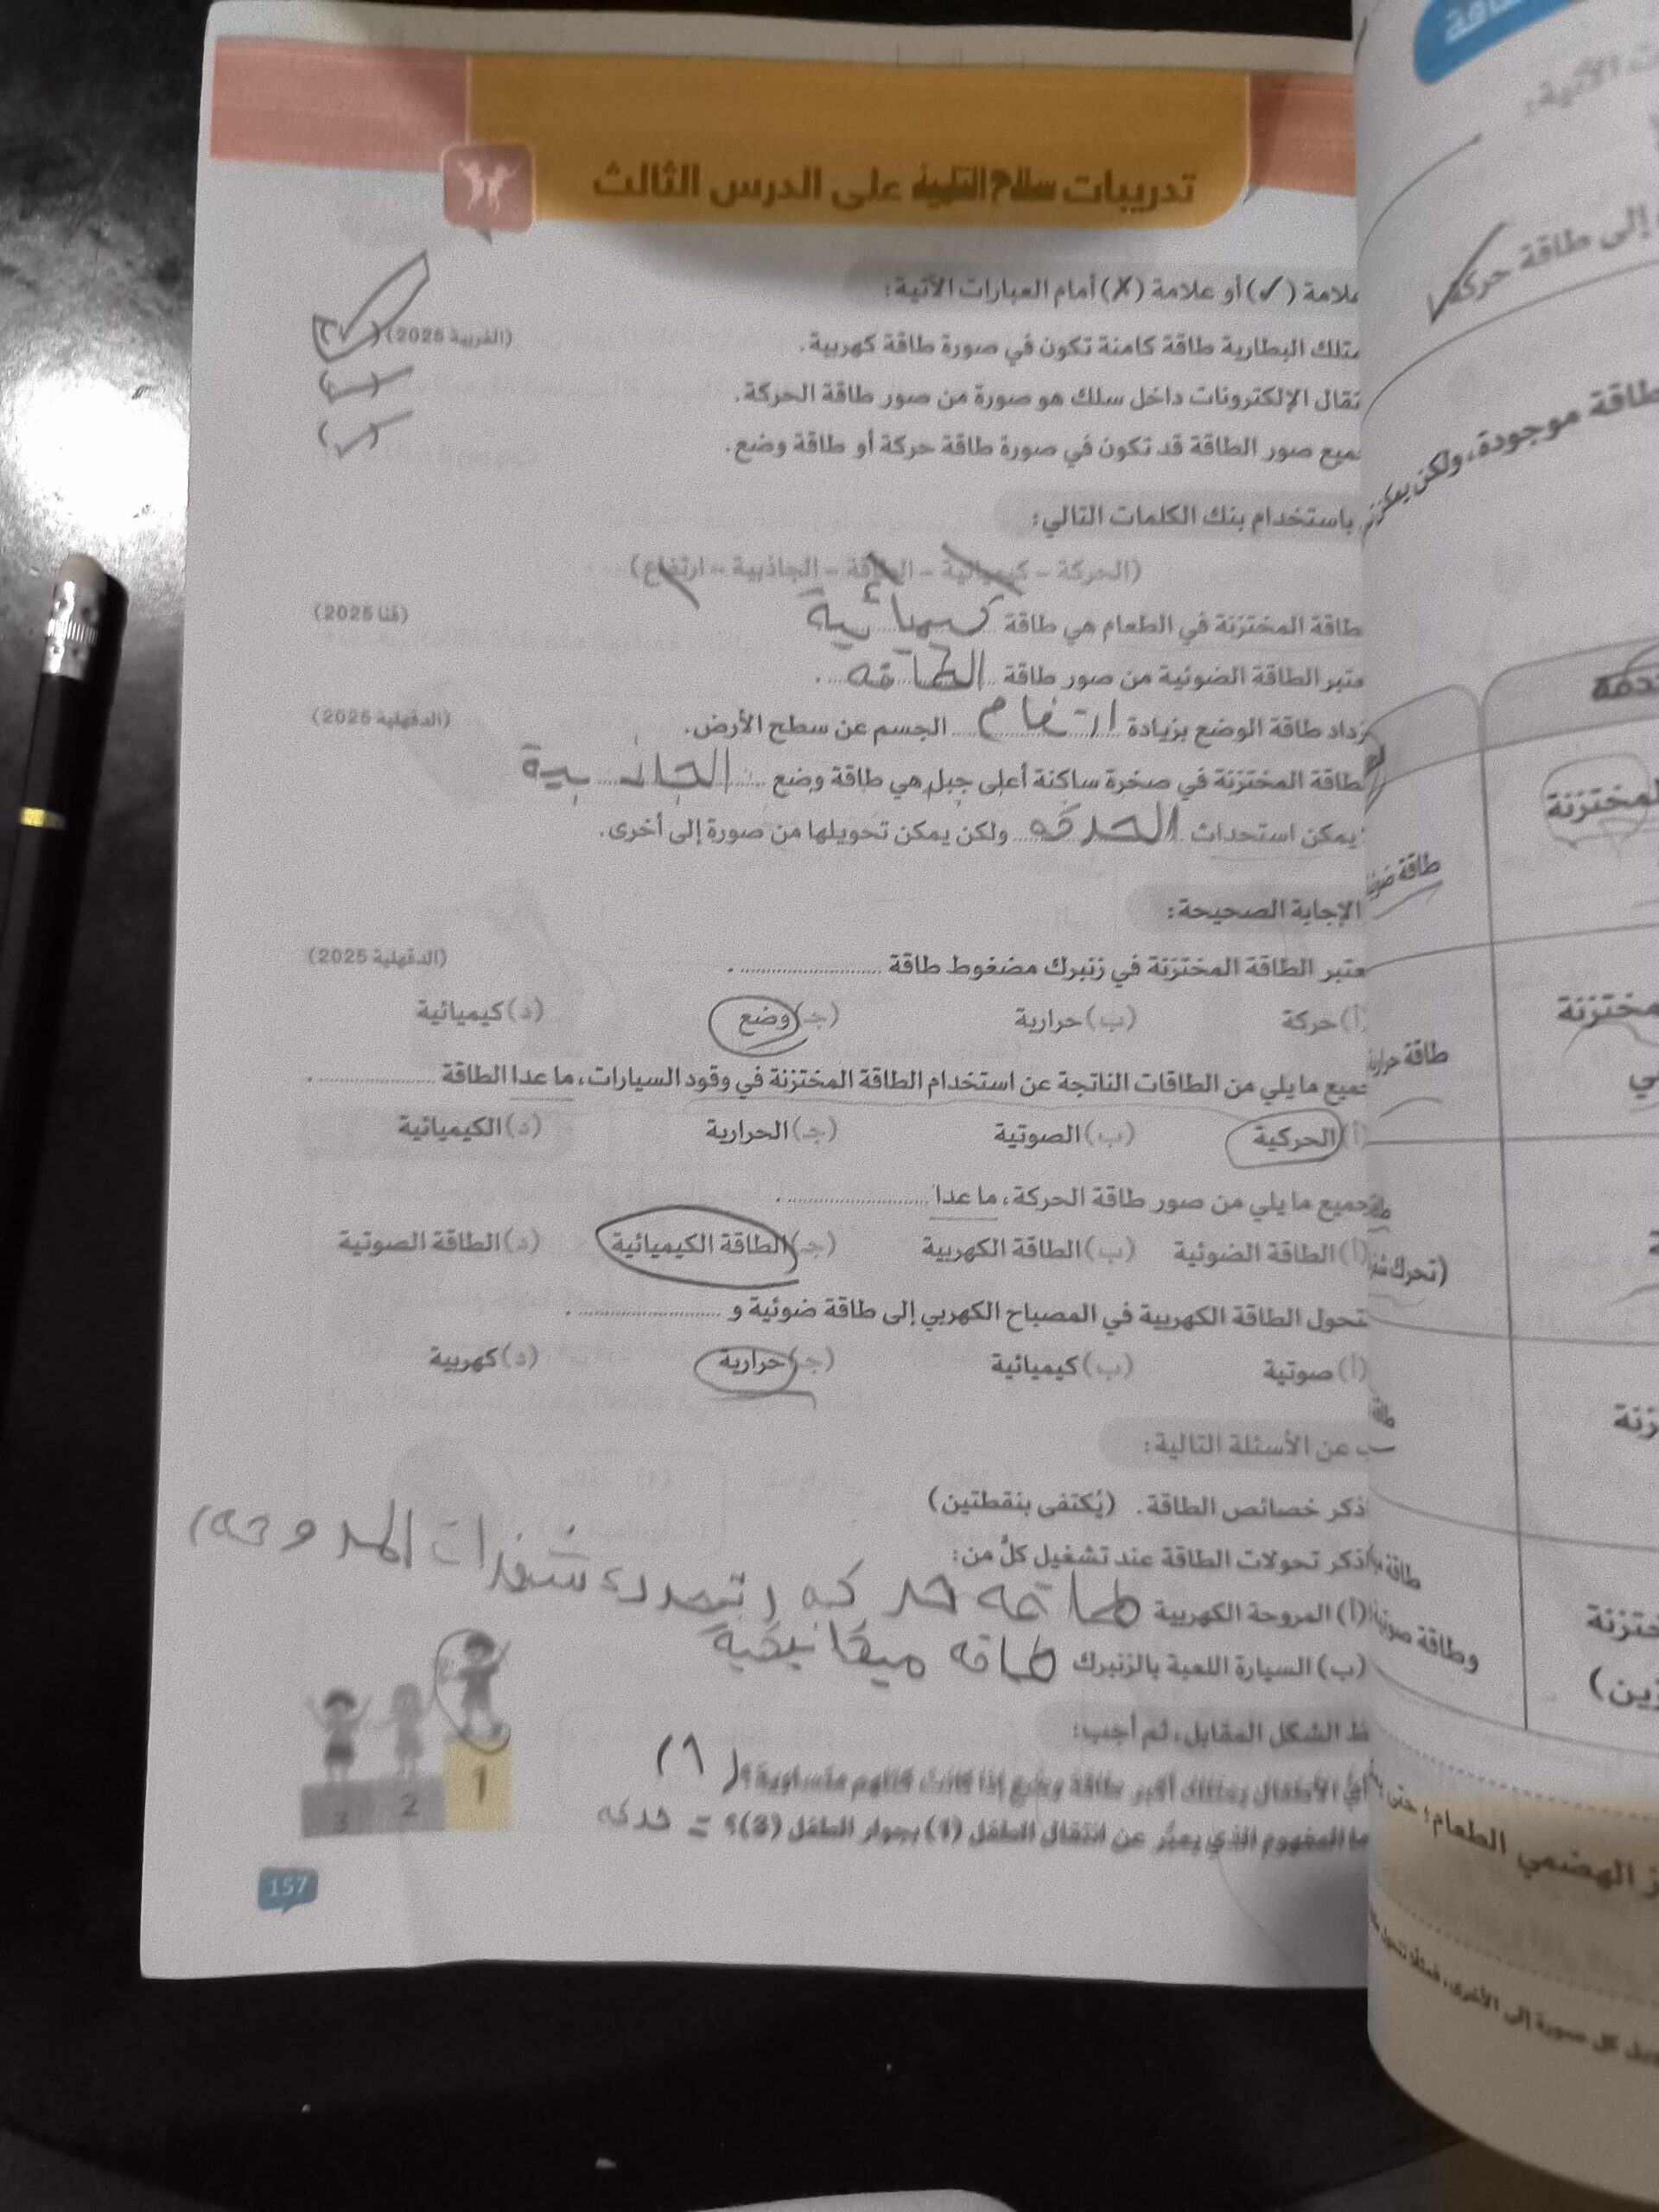 تدريبات سلاح التلميذ على الدرس الثالث
علامة (✓) أو علامة (✗) أمام العبارات الآتية:
متلك البطارية طاقة كامنة تكون في صورة طاقة كهربية. (الغربية 2025)
تقال الإلكترونات داخل سلك هو صورة من صور طاقة الحركة. (✓)
ميع صور الطاقة قد تكون في صورة طاقة حركة أو طاقة وضع. (✓)
باستخدام بنك الكلمات التالي:
(الحركة – كيميائية – الطاقة – الجاذبية – ارتفاع)
طاقة المختزنة في الطعام هي طاقة كيميائية (قنا 2025)
عتبر الطاقة الضوئية من صور طاقة الطاقه.
زداد طاقة الوضع بزيادة ارتفاع الجسم عن سطح الأرض. (الدقهلية 2025)
لطاقة المختزنة في صخرة ساكنة أعلى جبل هي طاقة وضع الجاذبية
يمكن استحداث الحركه ولكن يمكن تحويلها من صورة إلى أخرى.
الإجابة الصحيحة:
عتبر الطاقة المختزنة في زنبرك مضغوط طاقة .......... . (الدقهلية 2025)
(أ) حركة (ب) حرارية (جـ) وضع (د) كيميائية
جميع ما يلي من الطاقات الناتجة عن استخدام الطاقة المختزنة في وقود السيارات، ما عدا الطاقة .......... .
(أ) الحركية (ب) الصوتية (جـ) الحرارية (د) الكيميائية
جميع ما يلي من صور طاقة الحركة، ما عدا .......... .
(أ) الطاقة الضوئية (ب) الطاقة الكهربية (جـ) الطاقة الكيميائية (د) الطاقة الصوتية
تتحول الطاقة الكهربية في المصباح الكهربي إلى طاقة ضوئية و .......... .
(أ) صوتية (ب) كيميائية (جـ) حرارية (د) كهربية
ب عن الأسئلة التالية:
ذكر خصائص الطاقة. (يُكتفى بنقطتين)
اذكر تحولات الطاقة عند تشغيل كلٍّ من:
(أ) المروحة الكهربية طاقه حركه (تحرك شفرات المروحه)
(ب) السيارة اللعبة بالزنبرك طاقه ميكانيكيه
ظ الشكل المقابل، ثم أجب:
أي الأطفال يمتلك أكبر طاقة وضع إذا كانت كتلهم متساوية؟ (1)
ما المفهوم الذي يعبّر عن انتقال الطفل (1) بجوار الطفل (3)؟ = حركه
1
2
3
157
إلى طاقة حركة
طاقة موجودة، ولكن
المختزنة
طاقة
مختزنة
طاقة
(تحرك
وطاقة صوتية
ز الهضمي الطعام؛ حتى